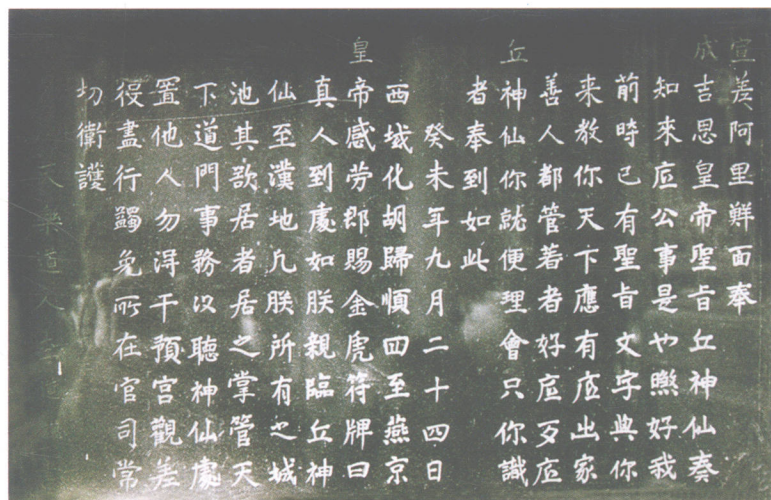 宣差阿里鮮面奉
成吉思皇帝聖旨丘神仙奏
知來底公事是也煞好我
前時已有聖旨文字與你
来教你天下應有底出家
善人都管著者好底歹底
丘神仙你就便理會只你識
者奉到如此
癸未年九月二十四日
西域化胡歸順回至燕京
皇帝感劳即賜金虎符牌曰
真人到處如朕親臨丘神
仙至漢地凡朕所有之城
池其欲居者居之掌管天
下道門事務以聽神仙處
置他人勿得干預宫觀差
役盡行蠲免所在官司常
切衛護
天樂道人